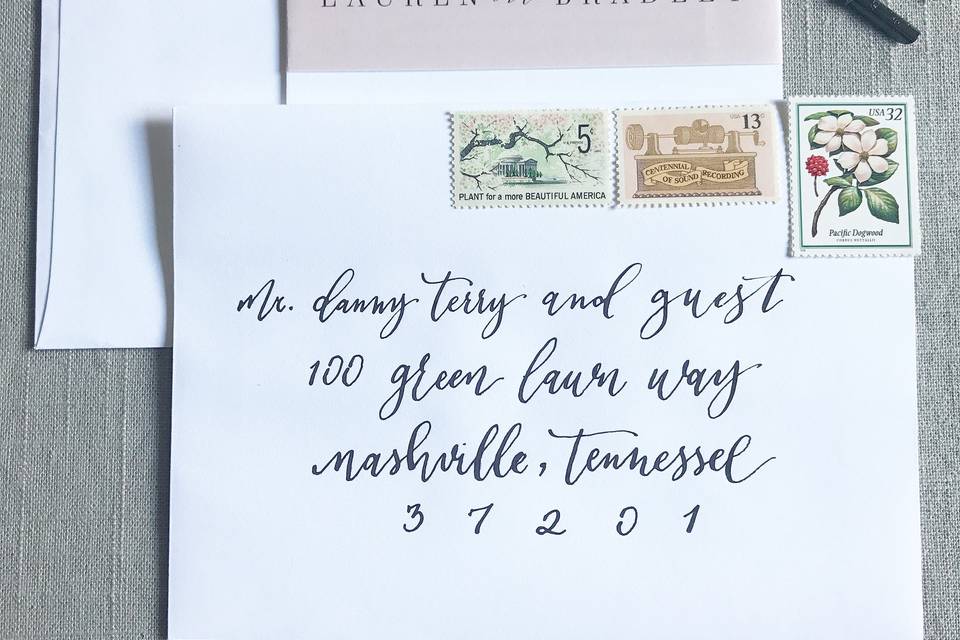 LAUREN and BRADLEY
5¢
PLANT for a more BEAUTIFUL AMERICA
USA 13c
CENTENNIAL
OF SOUND RECORDING
USA 32
Pacific Dogwood
CORNUS NUTTALLII
Mr. danny terry and guest
100 green lawn way
nashville, tennessee
3 7 2 0 1